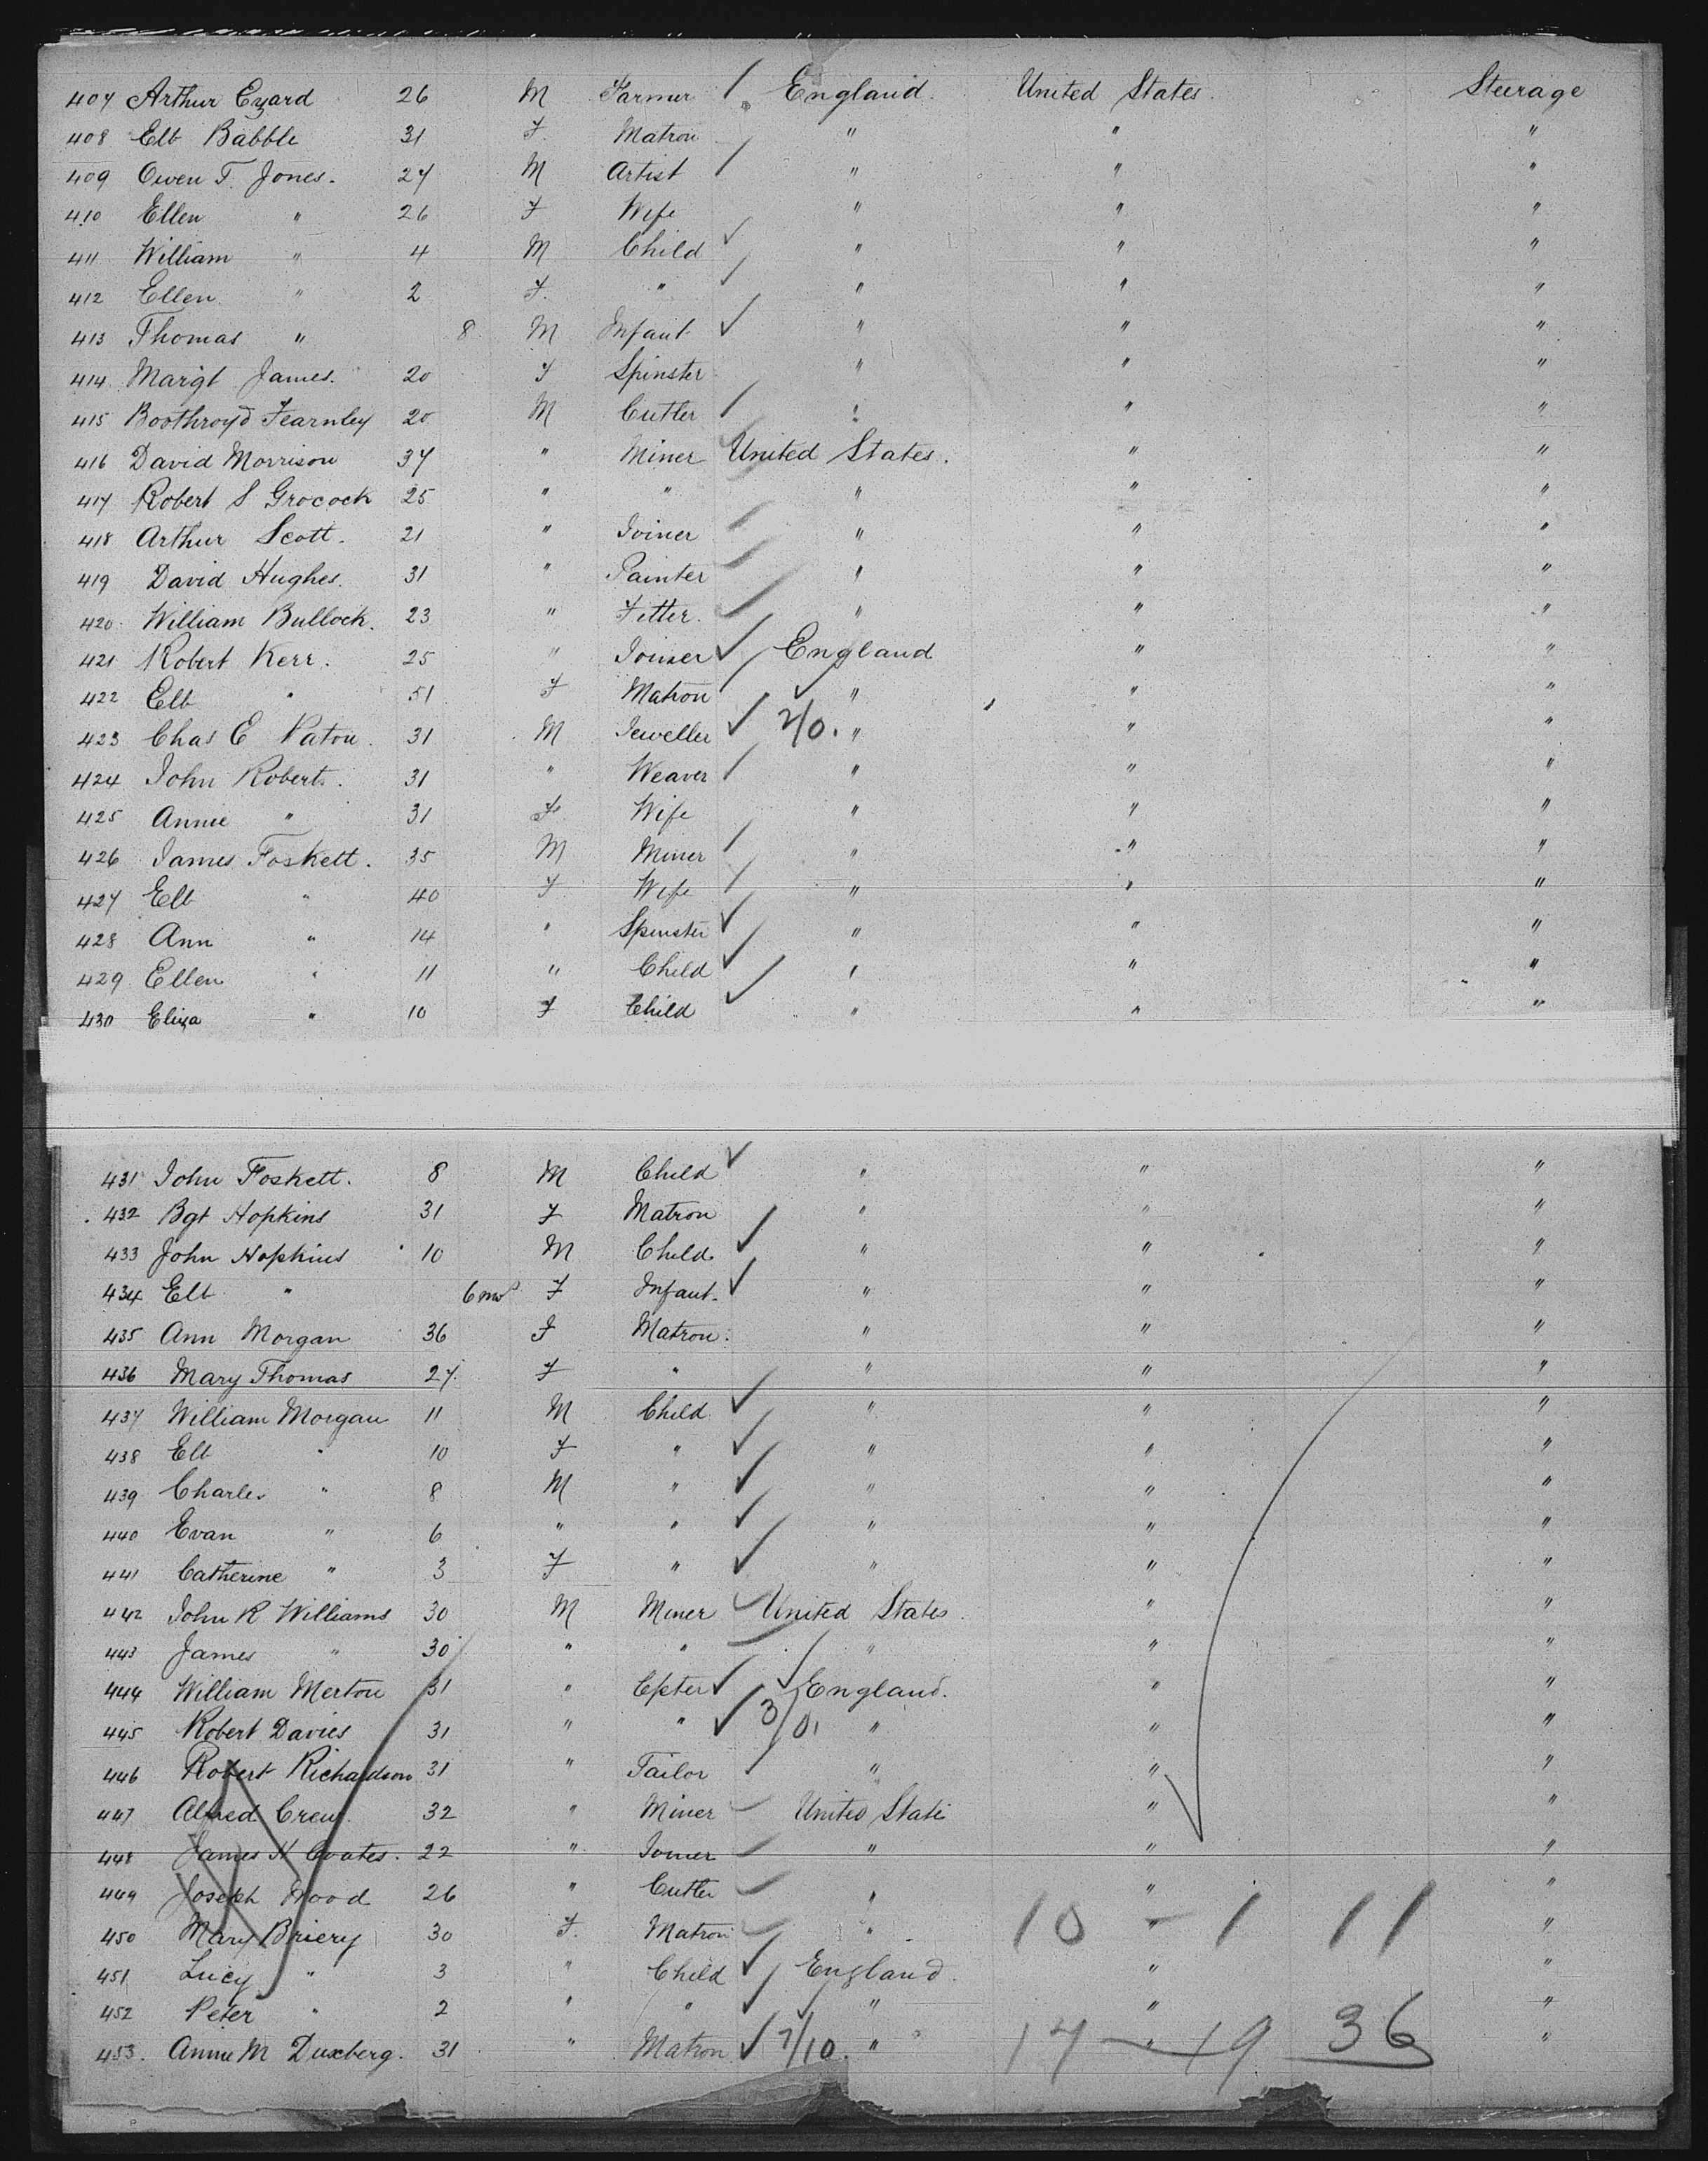 407 Arthur Eyard 26 M Farmer England. United States. Steerage
408 Elb Babble 31 F Matron " " "
409 Owen T. Jones. 27 M Artist " " "
410 Ellen " 26 F Wife " " "
411 William " 4 M Child " " "
412 Ellen " 2 F. " " " "
413 Thomas " 8 M Infant " " "
414 Margt James. 20 F Spinster " " "
415 Boothroyd Fearnley 20 M Cutler " " "
416 David Morrison 37 " Miner United States. " "
417 Robert S Grocock 25 " " " " "
418 Arthur Scott. 21 " Joiner " " "
419 David Hughes. 31 " Painter " " "
420 William Bullock. 23 " Fitter. " " "
421 Robert Kerr. 25 " Joiner England " "
422 Elb " 51 F Matron " " "
423 Chas E Paton. 31 M Jeweller 2/0. " " "
424 John Roberts. 31 " Weaver " " "
425 Annie " 31 F Wife " " "
426 James Foskett. 35 M Miner " " "
427 Elb " 40 F Wife " " "
428 Ann " 14 " Spinster " " "
429 Ellen " 11 " Child " " "
430 Eliza " 10 F Child " " "
431 John Foskett. 8 M Child " " "
432 Bgt Hopkins 31 F Matron " " "
433 John Hopkins 10 M Child " " "
434 Elb " 6 mos F Infant. " " "
435 Ann Morgan 36 F Matron. " " "
436 Mary Thomas 27. F " " " "
437 William Morgan 11 M Child " " "
438 Elb " 10 F " " " "
439 Charles " 8 M " " " "
440 Evan " 6 " " " " "
441 Catherine " 3 F " " " "
442 John R Williams 30 M Miner United States. " "
443 James " 30 " " " " "
444 William Merton 31 " Cpter England. " "
445 Robert Davies 31 " " 3/0. " " "
446 Robert Richardson 31 " Tailor " " "
447 Alfred Crew. 32 " Miner United State " "
448 James H Coates. 22 " Joiner " " "
449 Joseph Wood 26 " Cutler " " "
450 Mary Briery 30 F. Matron " " 10 - 1 11 "
451 Lucy " 3 " Child England. " "
452 Peter " 2 " " " " "
453. Annie M Duxberg. 31 " Matron 7/10. " " 17 - 19 36 "